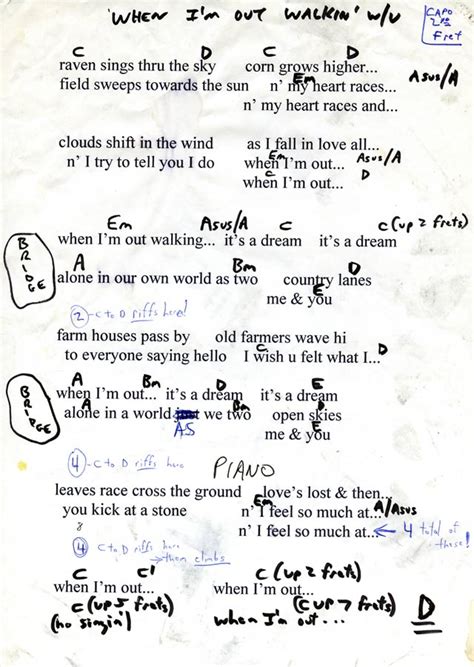 'WHEN I'M OUT WALKIN' W/U
CAPO
2ND
Fret
C D
raven sings thru the sky corn grows higher...
Em Asus/A
field sweeps towards the sun n' my heart races...
n' my heart races and...
clouds shift in the wind as I fall in love all...
Em Asus/A
n' I try to tell you I do when I'm out...
C D
when I'm out...
Em Asus/A C C (up 2 frets)
BRIDGE
when I'm out walking... it's a dream it's a dream
A Bm D
alone in our own world as two country lanes
E
me & you
2 - C to D riffs here!
farm houses pass by old farmers wave hi
C D
to everyone saying hello I wish u felt what I...
A Bm D E
BRIDGE
when I'm out... it's a dream it's a dream
A Bm D
alone in a world we two open skies
AS E
me & you
4 - C to D riffs here
PIANO
leaves race cross the ground love's lost & then...
Em A/Asus
you kick at a stone n' I feel so much at...
8
n' I feel so much at... ← 4 total of these!
4 C to D riffs here
→ then climbs
C C' C (up 2 frets)
when I'm out... when I'm out...
C (up 5 frets) (C up 7 frets) D
(no singin') when I'm out...